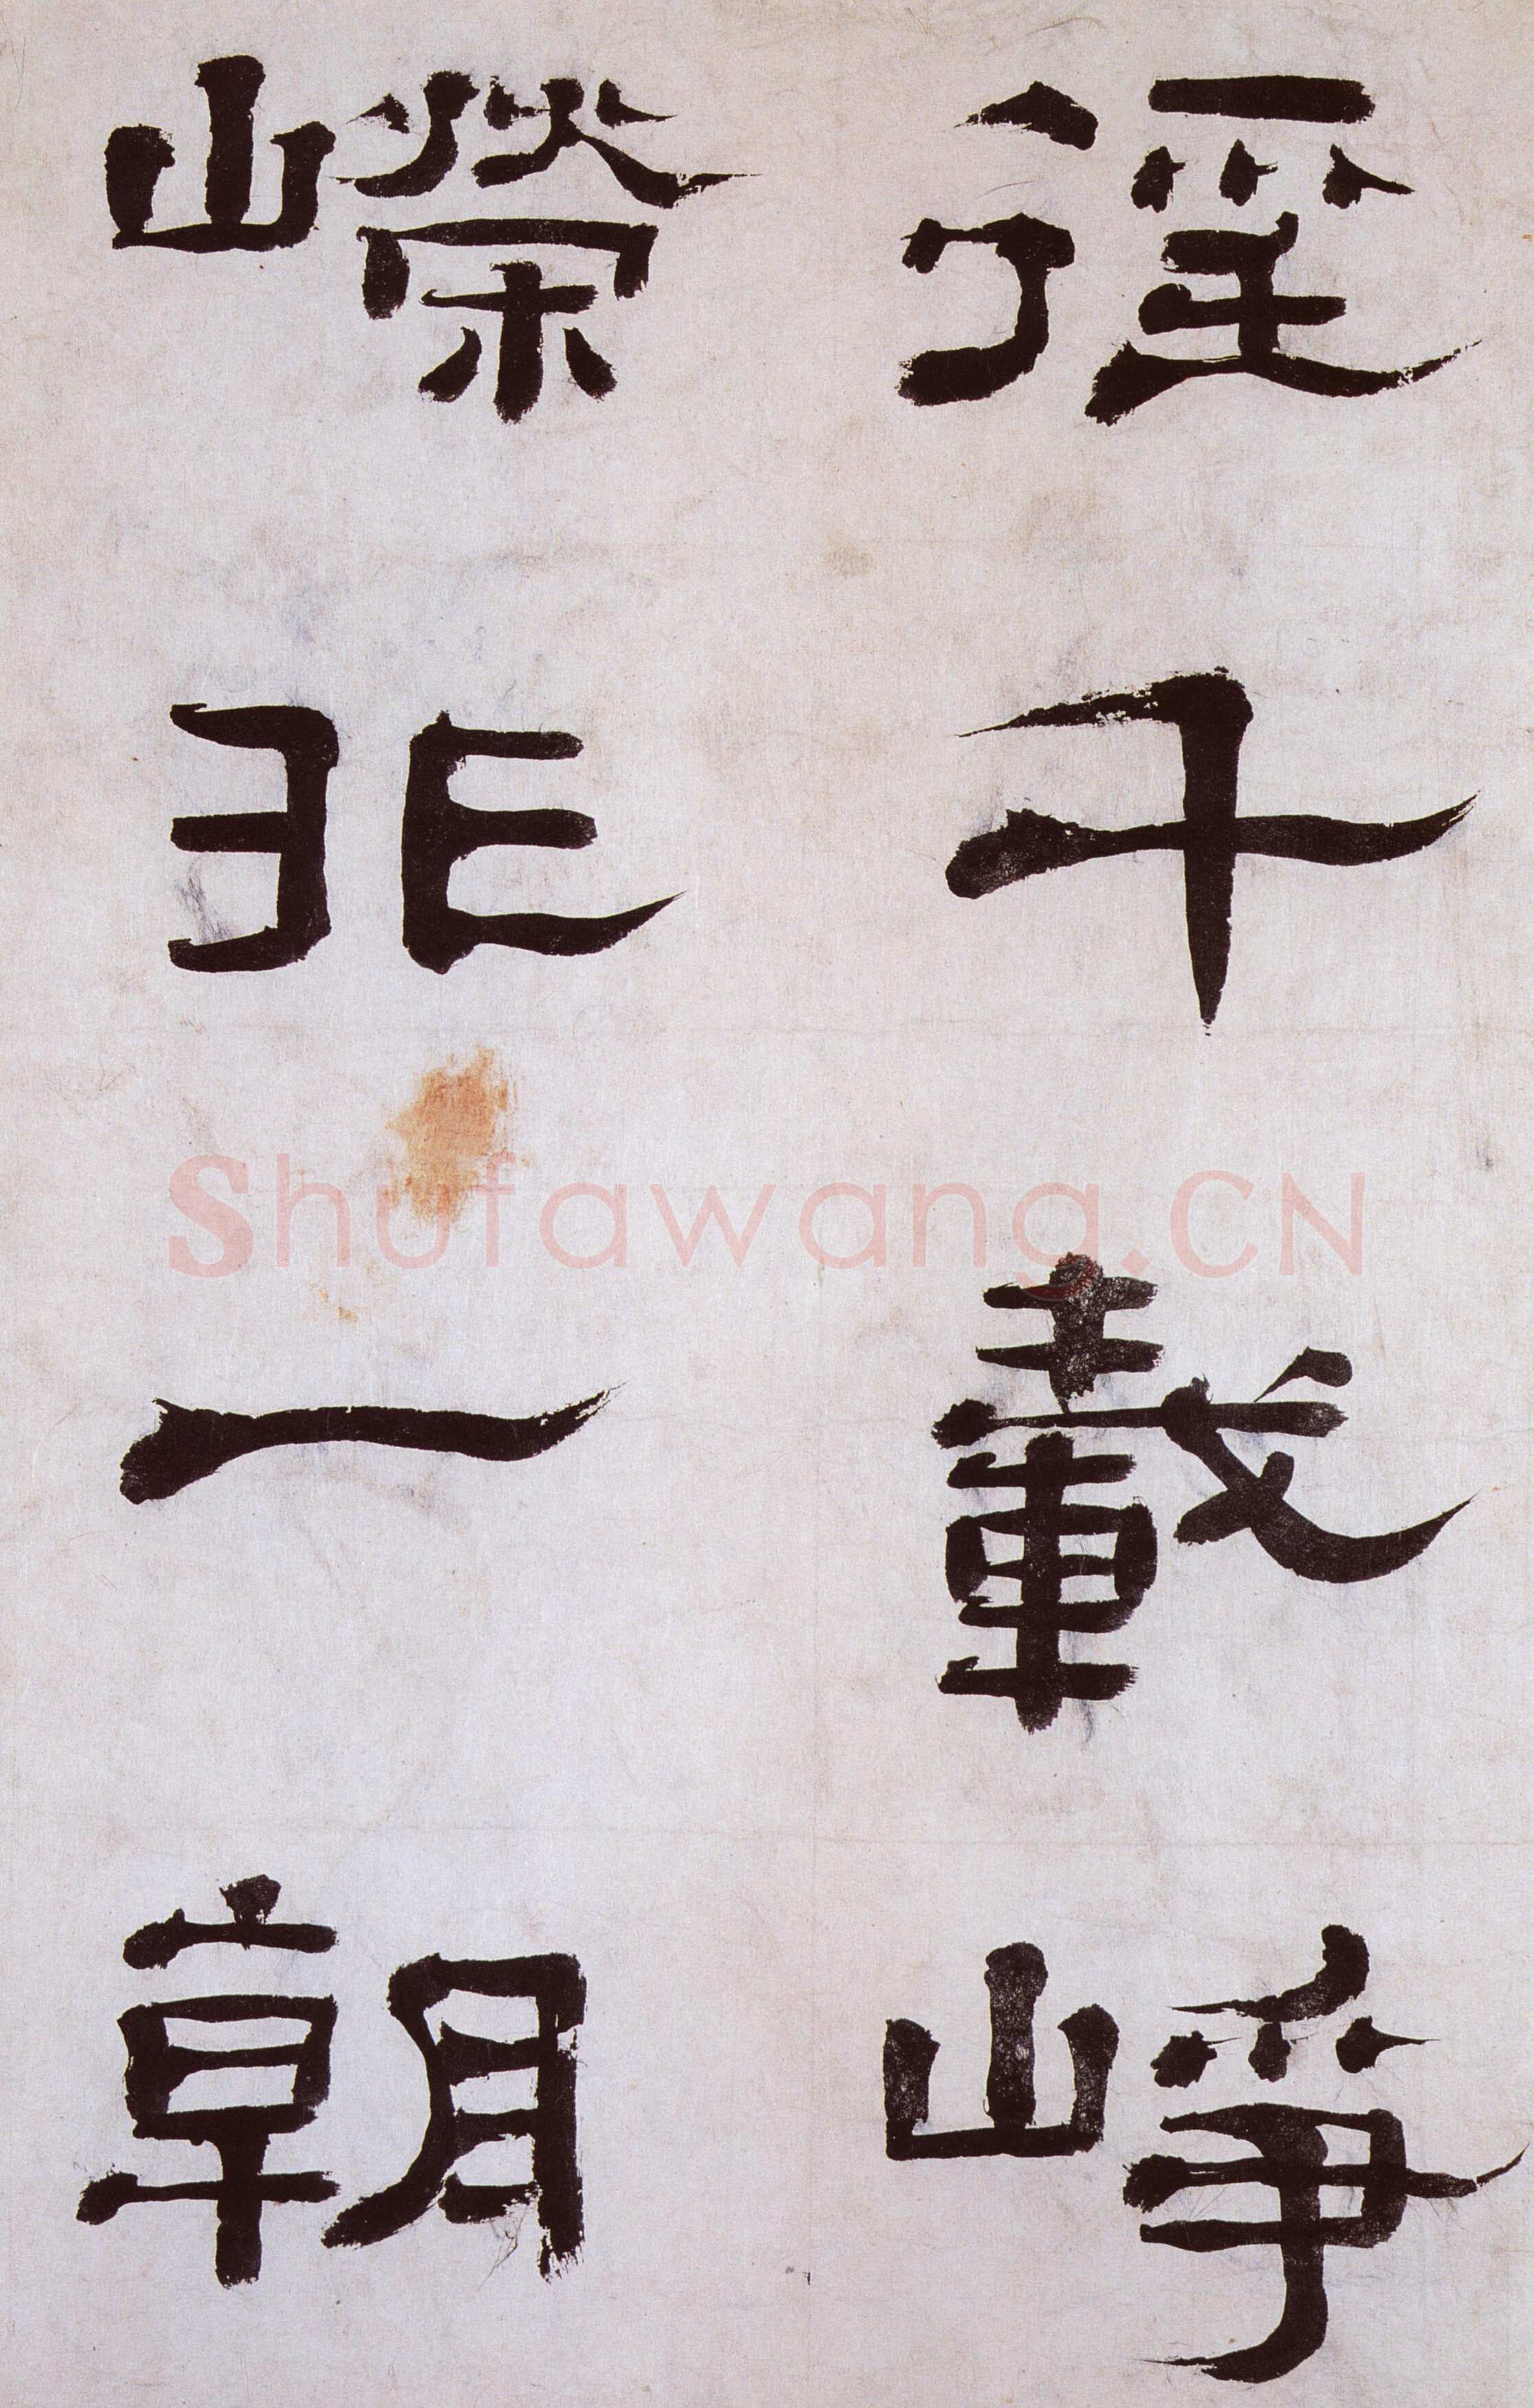 徑千載崢
嶸非一朝
Shufawang.CN